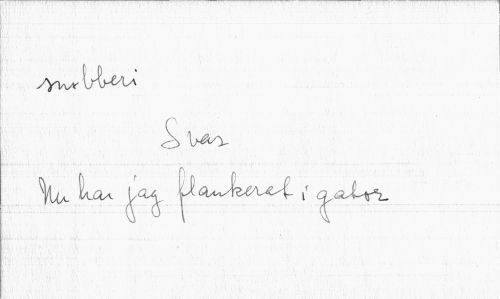 snobberi
Svar
Nu har jag flankerat i gator